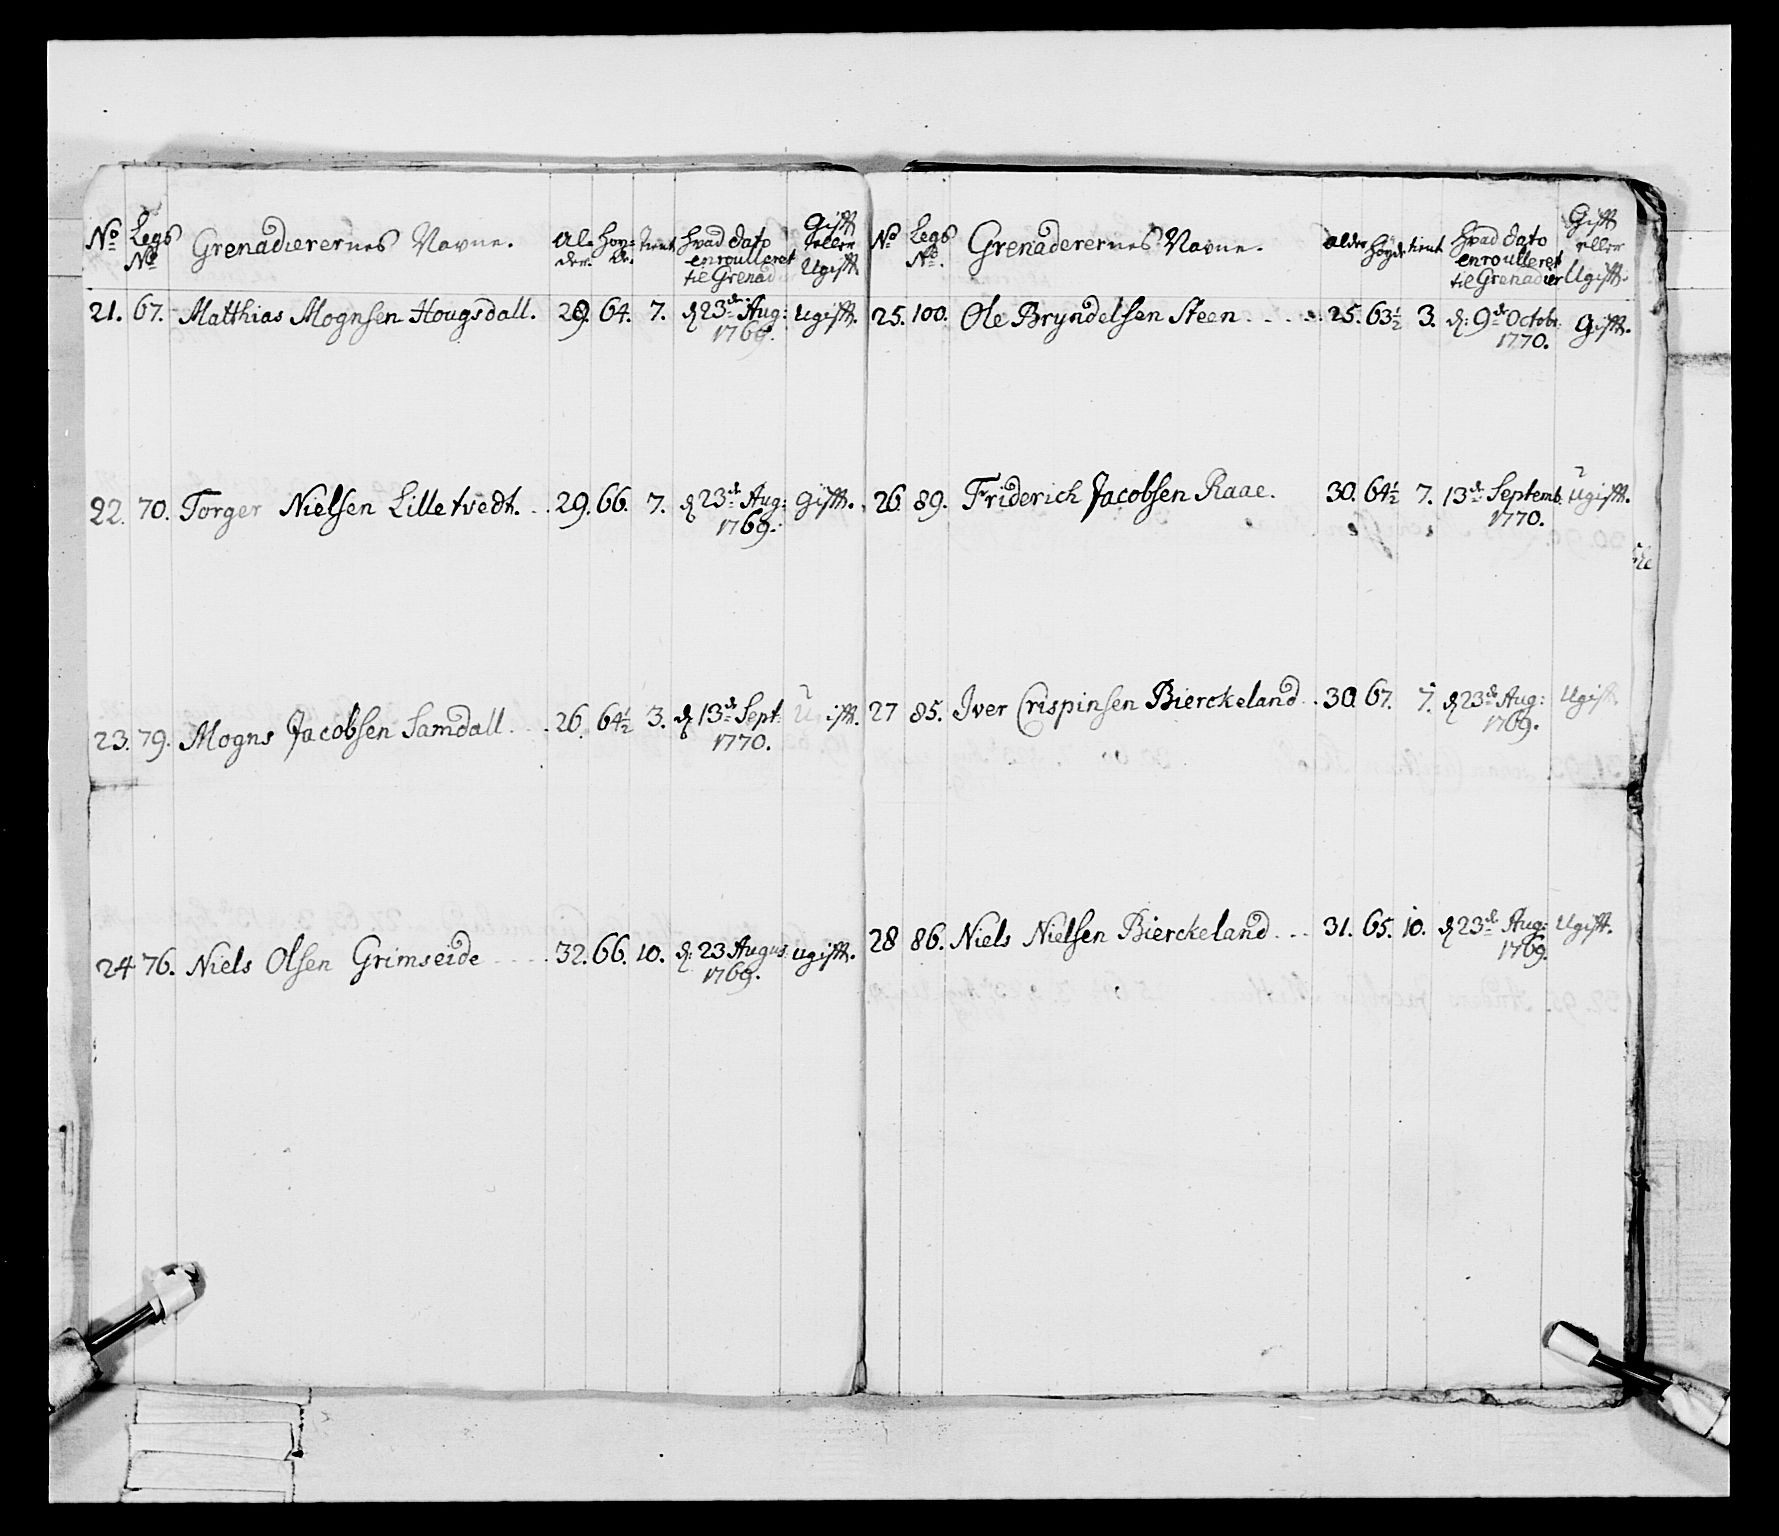 No Legs No Grenaderernes Navne. Alder. Høyde. tient hvad dato enroulleret til Grenad Gifft eller Ugifft
21. 67. Matthias Mognsen Hougsdall. 29. 64. 7. d 23de Aug: 1769. Ugifft.
22. 70. Torger Nielsen Lilletvedt. 29. 66. 7. d 23de Aug: 1769. Gifft.
23. 79. Mogns Jacobsen Samdall. 26. 64½ 3. d 13de Sept: 1770.
24 76. Niels Olsen Grimseide 32. 66. 10. d. 23 Augus 1769. Ugifft.
No Legs No. Grenaderernes Navne. alder høyde tient hvad dato enroulleret til Grenadier Gifft eller Ugifft.
25. 100. Ole Bryndelsen Steen 25. 63½ 3. d. 9de Octobr: 1770. Gifft.
26. 89. Friderich Jacobsen Raae. 30. 64½ 7. 13de Septemb. 1770. Ugifft.
27 85. Iver Crispinsen Bierckeland 30. 67. 7. d 23de Aug: 1769. Ugifft
28 86. Niels Nielsen Bierckeland 31. 65. 10. d 23de Aug: 1769. Ugifft.